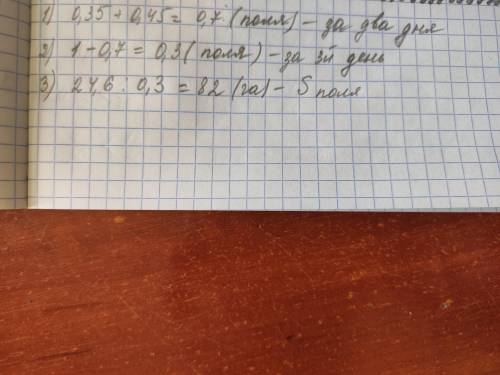 1) 0,35 + 0,45 = 0,7 (поля) - за два дня
2) 1 - 0,7 = 0,3 (поля) - за 3й день
3) 24,6 : 0,3 = 82 (га) - S поля